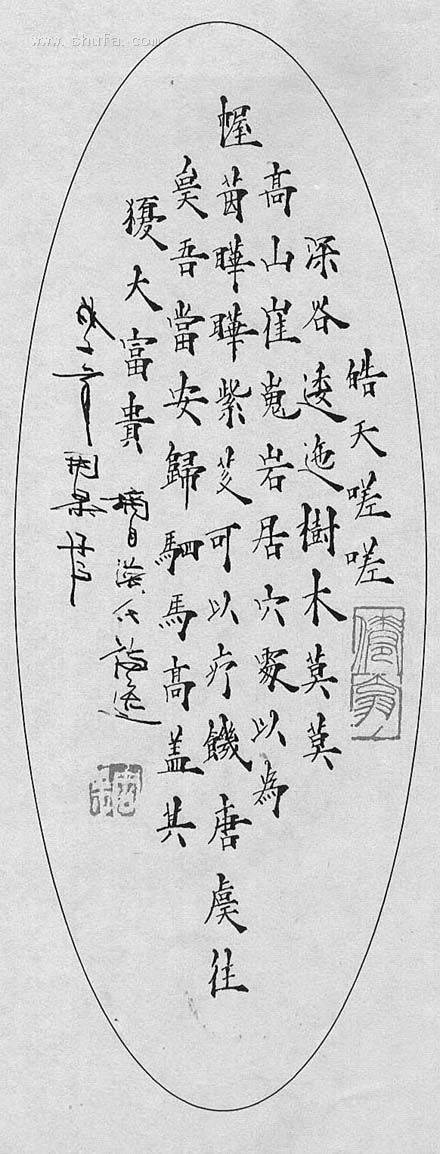 www.shufa.com
皓天嗟嗟
深谷逶迤樹木莫莫
高山崔嵬岩居穴處以為
幄茵曄曄紫芝可以疗饑唐虞往
矣吾當安歸駟馬高盖其
大富貴
摘自漢代